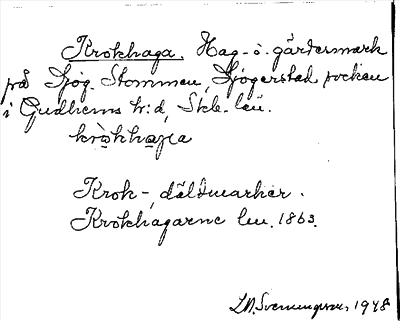 Krokhaga. Hag- o. gärdesmark
på Sjög. Stommen, Sjögerstad socken
i Gudhems h:d, Skb. län.
Krok-, däldmarker.
Krokhagarne len. 1863.
1948